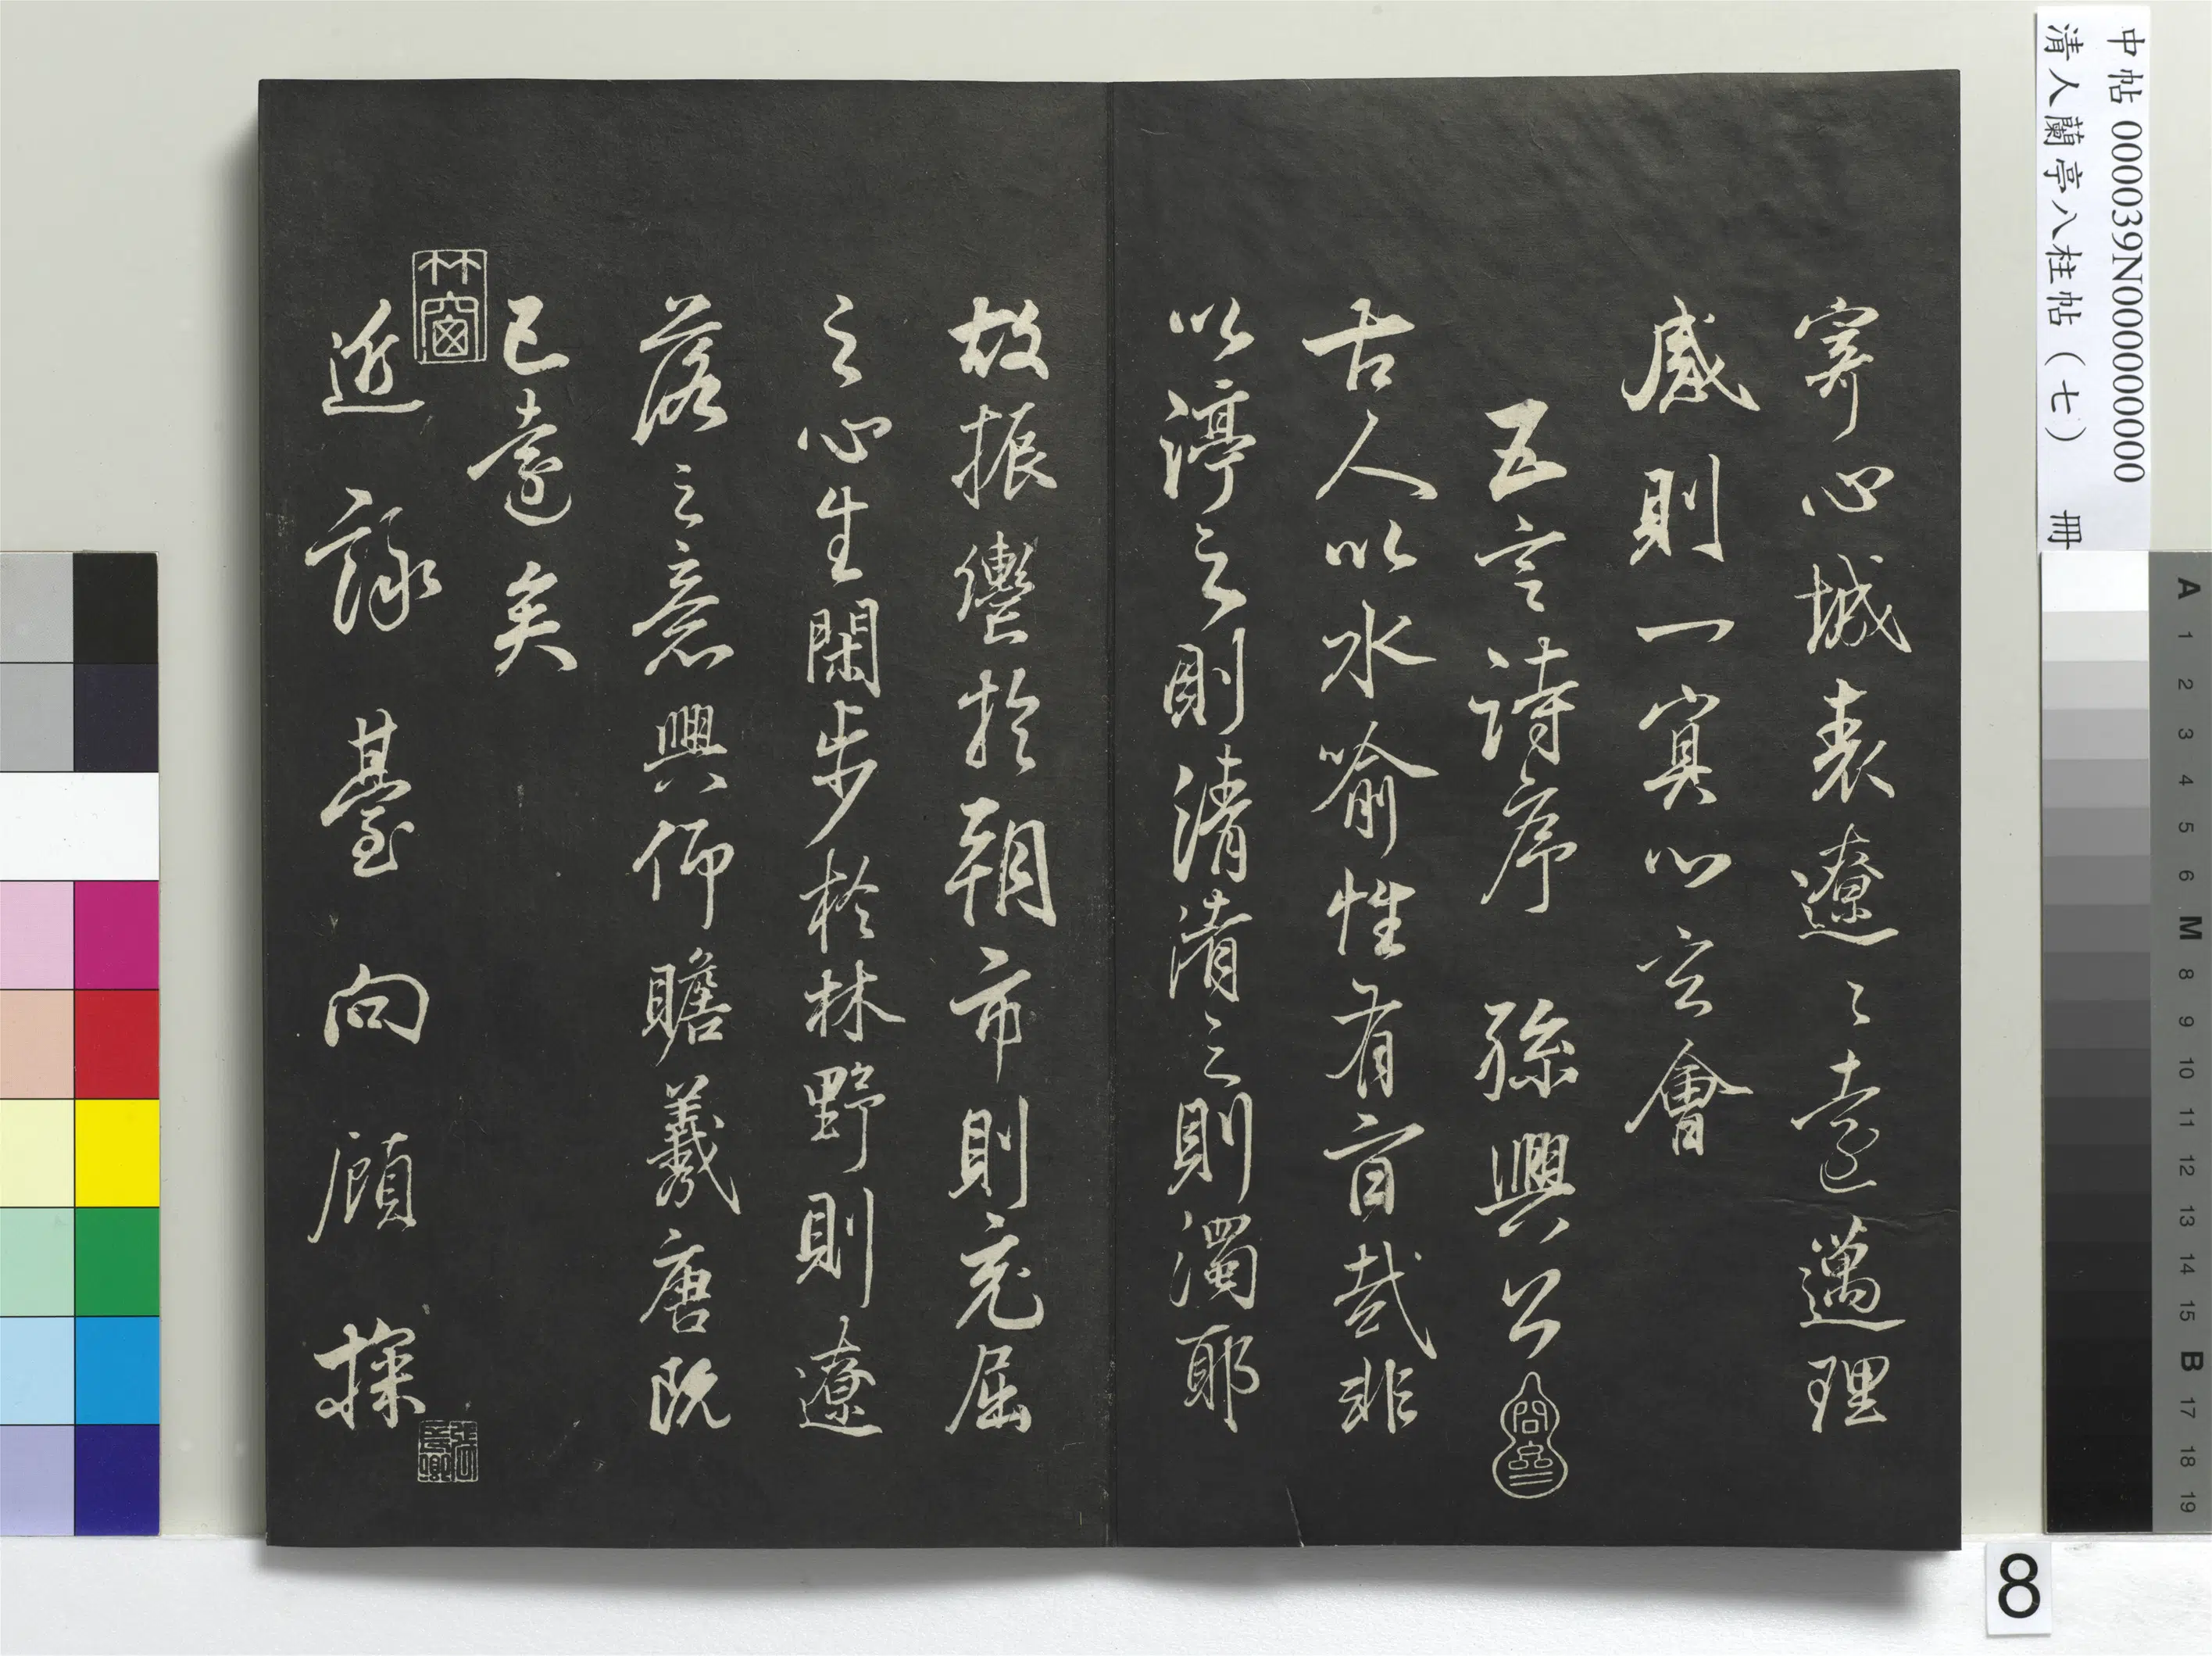 寄心域表遼々遠邁理
感則一冥心玄會
五言詩序 孫興公
古人以水喻性有旨哉非
以渟之則清淆之則濁耶
故振轡於朝市則充屈
之心生閑步於林野則遼
落之意興仰瞻羲唐既
已遠矣
近詠臺向顧探
竹窗
中帖 000039N000000000
清人蘭亭八柱帖(七) 冊
A 1 2 3 4 5 6 M 8 9 10 11 12 13 14 15 B 17 18 19
8